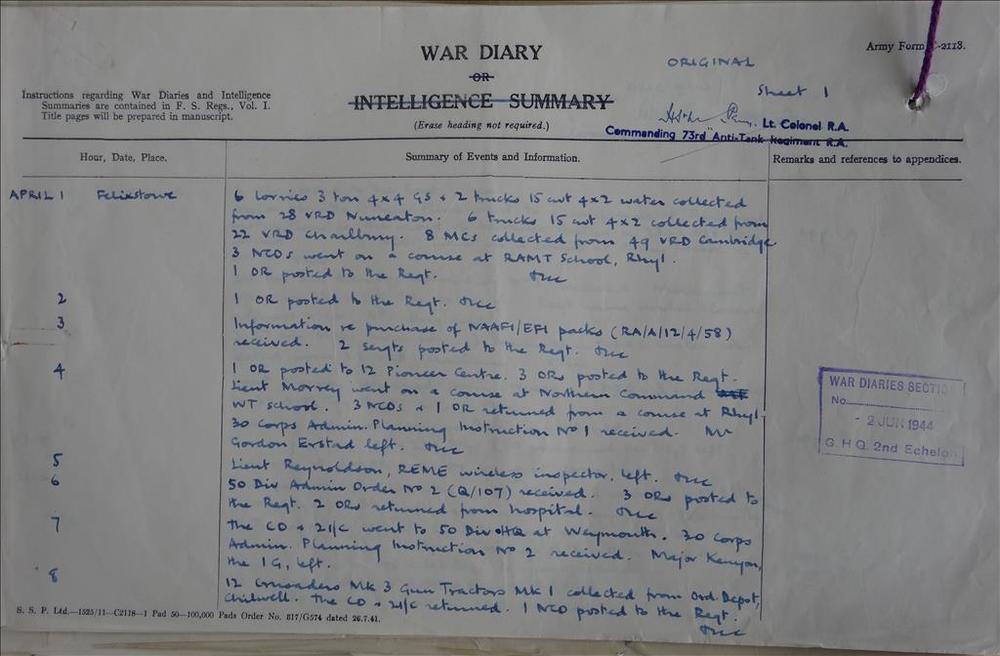 Army Form C-2118.
WAR DIARY
OR
INTELLIGENCE SUMMARY
(Erase heading not required.)
ORIGINAL
Sheet 1
Instructions regarding War Diaries and Intelligence
Summaries are contained in F. S. Regs., Vol. I.
Title pages will be prepared in manuscript.
Lt. Colonel R.A.
Commanding 73rd Anti-Tank Regiment R.A.
Hour, Date, Place.
Summary of Events and Information.
Remarks and references to appendices.
APRIL 1 Felixstowe
6 lorries 3 ton 4x4 GS + 2 trucks 15 cwt 4x2 water collected
from 28 VRD Nuneaton. 6 trucks 15 cwt 4x2 collected from
22 VRD Charlbury. 8 MCs collected from 49 VRD Cambridge
3 NCOs went on a course at RAMT School, Rhyl.
1 OR posted to the Regt.
2 1 OR posted to the Regt.
3 Information re purchase of NAAFI/EFI packs (RA/A/12/4/58)
received. 2 sergts posted to the Regt.
4 1 OR posted to 12 Pioneer Centre. 3 ORs posted to the Regt.
Lieut Morrey went on a course at Northern Command
WT school. 3 NCOs + 1 OR returned from a course at Rhyl.
30 Corps Admin. Planning Instruction No 1 received. Mr
Gordon Erstad left.
5 Lieut Reynoldson, REME wireless inspector, left.
6 50 Div Admin Order No 2 (Q/107) received. 3 ORs posted to
the Regt. 2 ORs returned from hospital.
7 The CO + 2i/c went to 50 Div HQ at Weymouth. 30 Corps
Admin. Planning Instruction No 2 received. Major Kenyon,
the IG, left.
8 12 Crusaders Mk 3 Gun Tractors Mk 1 collected from Ord. Depot,
Chilwell. The CO + 2i/c returned. 1 NCO posted to the Regt.
WAR DIARIES SECTION
No.
- 2 JUN 1944
G.H.Q. 2nd Echelon
S. S. P. Ltd.—1525/11—C2118—1 Pad 50—100,000 Pads Order No. 817/G574 dated 26.7.41.